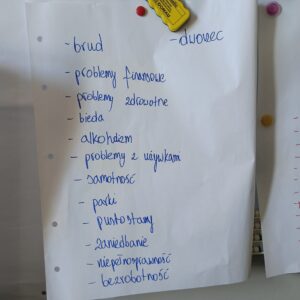 - brud
- dworzec
- problemy finansowe
- problemy zdrowotne
- bieda
- alkoholizm
- problemy z używkami
- samotność
- parki
- pustostany
- zaniedbanie
- niepełnosprawność
- bezrobotność